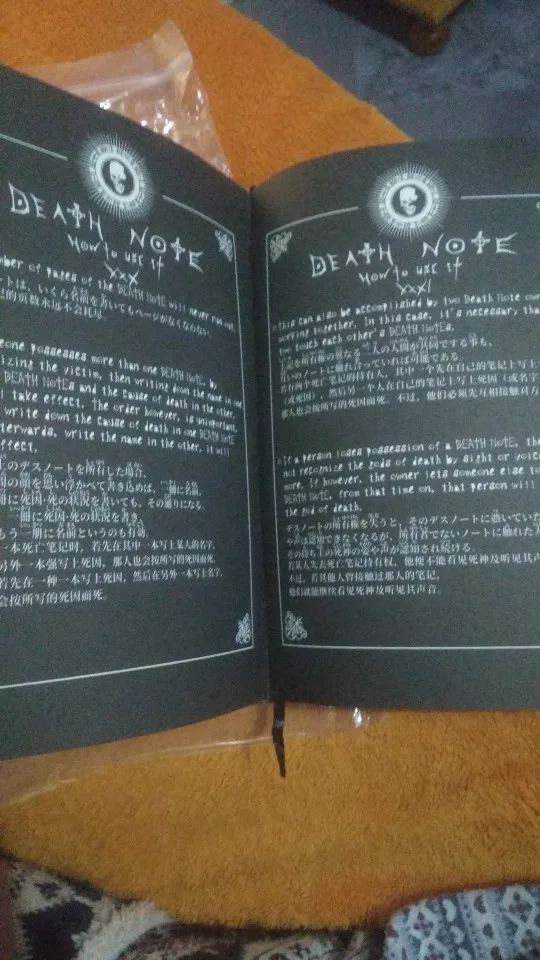 DEATH NOTE
HOW TO USE IT
XXX
number of pages of the DEATH NOTE will never run out.
ートは、いくら名前を書いてもページがなくならない。
的页数永远不会耗尽。
one possesses more than one DEATH NOTE, by
izing the victim, then writing down the name in one
DEATH NOTEs and the cause of death in the other,
l take effect. The order however, is unimportant,
write down the cause of death in one DEATH NOTE
terwards, write the name in the other, it will
effect.
上のデスノートを所有した場合、
の顔を思い浮かべて書き込めば、一冊に名前、
冊に死因・死の状況を書いても、その通りになる。
一冊に死因・死の状況を書き、
もう一冊に名前というのも有効。
一本死亡笔记时，若先在其中一本写上某人的名字，
另外一本写上死因，那人也会按所写的死因而死。
若先在一本写上死因，然后在另外一本写上名字，
会按所写的死因而死。
DEATH NOTE
HOW TO USE IT
XXXI
This can also be accomplished by two Death Note own
working together. In this case, it's necessary tha
two touch each other's DEATH NOTEs.
前の所有権の異なる二人の人間が共同でする事も、
互いのノートに触れ合っていれば可能である。
若有两个死亡笔记的持有人，其中一个先在自己的笔记上写上
(或死因)，然后另一个人在自己的笔记上写上死因（或名字
那人也会按所写的死因而死。不过，他们必须先互相接触对方
If a person loses possession of a DEATH NOTE, the
not recognize the gods of death by sight or voice
more. If however, the owner lets someone else to
DEATH NOTE, from that time on, that person will
the god of death.
デスノートの所有権を失うと、そのデスノートに憑いていた
や声は認知できなくなるが、所有者でないノートに触れた人
その持ち主の死神の姿や声が認知され続ける。
若某人失去死亡笔记持有权，他便不能看见死神及听见其声
不过，若其他人曾接触过那人的笔记，
他们就能继续看见死神及听见其声音。